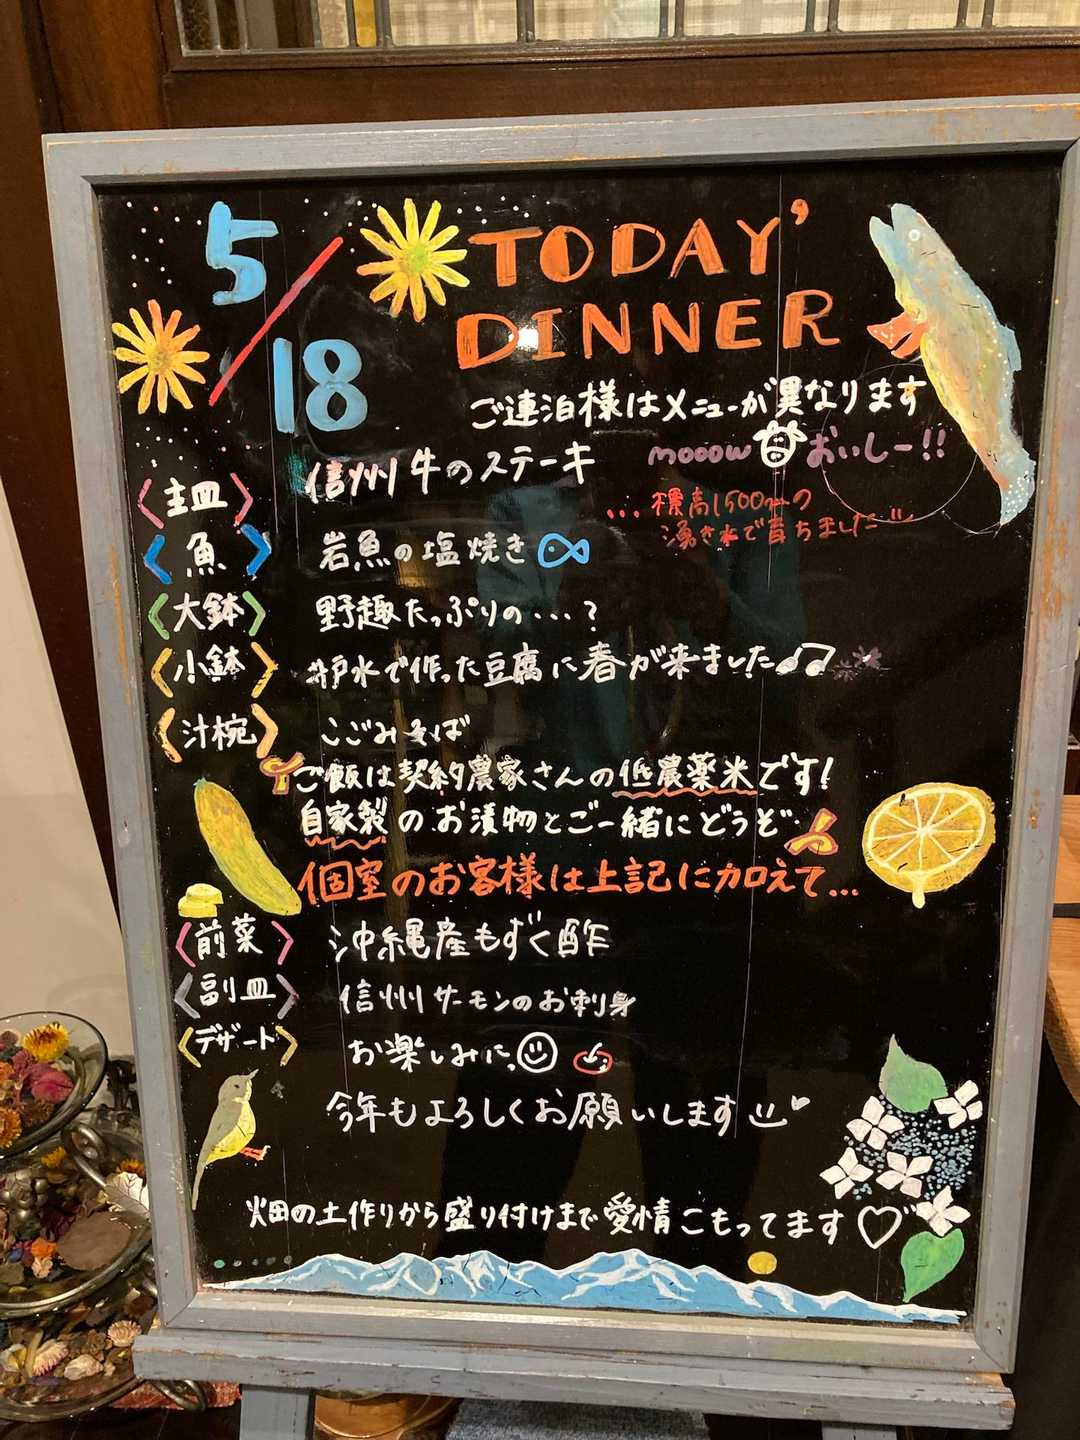 5/18
TODAY' DINNER
ご連泊様はメニューが異なります
mooow おいしー!!
〈主皿〉 信州牛のステーキ
...標高1500mの
湧き水で育ちました
〈魚〉 岩魚の塩焼き
〈大鉢〉 野趣たっぷりの...?
〈小鉢〉 井戸水で作った豆腐に春が来ました♫
〈汁椀〉 こごみそば
ご飯は契約農家さんの低農薬米です!
自家製のお漬物とご一緒にどうぞ
個室のお客様は上記に加えて...
〈前菜〉 沖縄産もずく酢
〈副皿〉 信州サーモンのお刺身
〈デザート〉 お楽しみに。
今年もよろしくお願いします
畑の土作りから盛り付けまで愛情こもってます♡